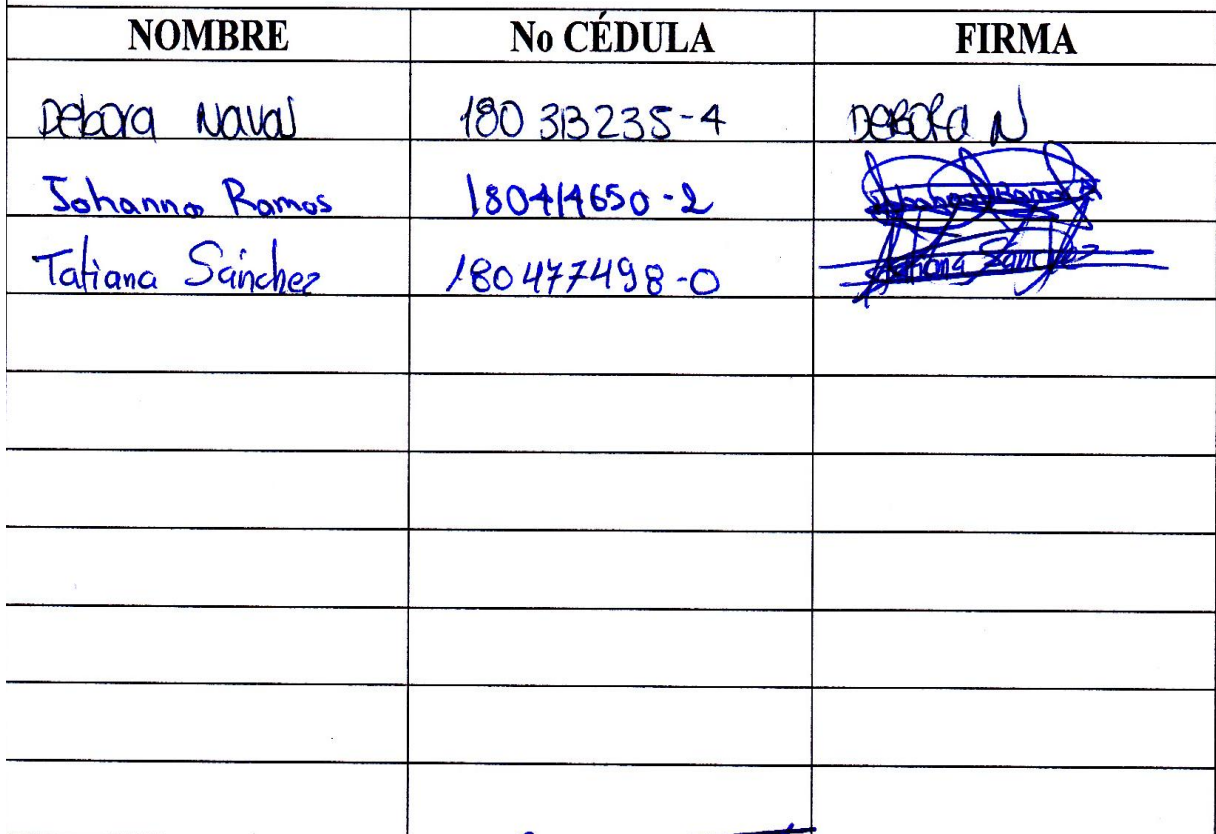 NOMBRE No CÉDULA FIRMA
Debora Naval 180313235-4 DEBORA N
Johanna Ramos 180414650-2
Tatiana Sánchez 180477498-0 Tatiana Sánchez